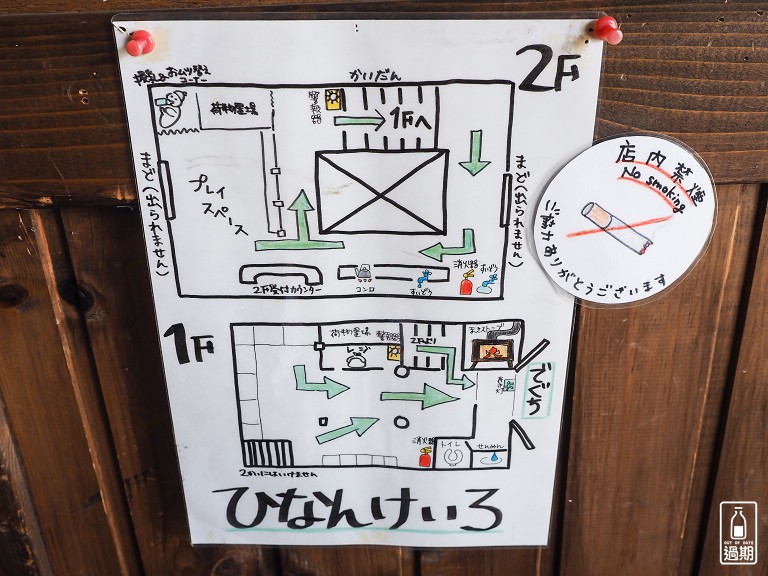 2F
授乳&おムツ替え
コーナー
かいだん
荷物置場
警報器
1Fへ
まど(出られません)
まど(出られません)
プレイ
スペース
2F受付カウンター
コンロ
すいどう
消火器
すいどう
店内禁煙
No smoking
ご協力ありがとうございます
1F
荷物置場
警報器
2Fより
まきストーブ
レジ
でぐち
消火器
トイレ
せんめん
2かいにはいけません
ひなんけいろ
OUT OF DATE
過期